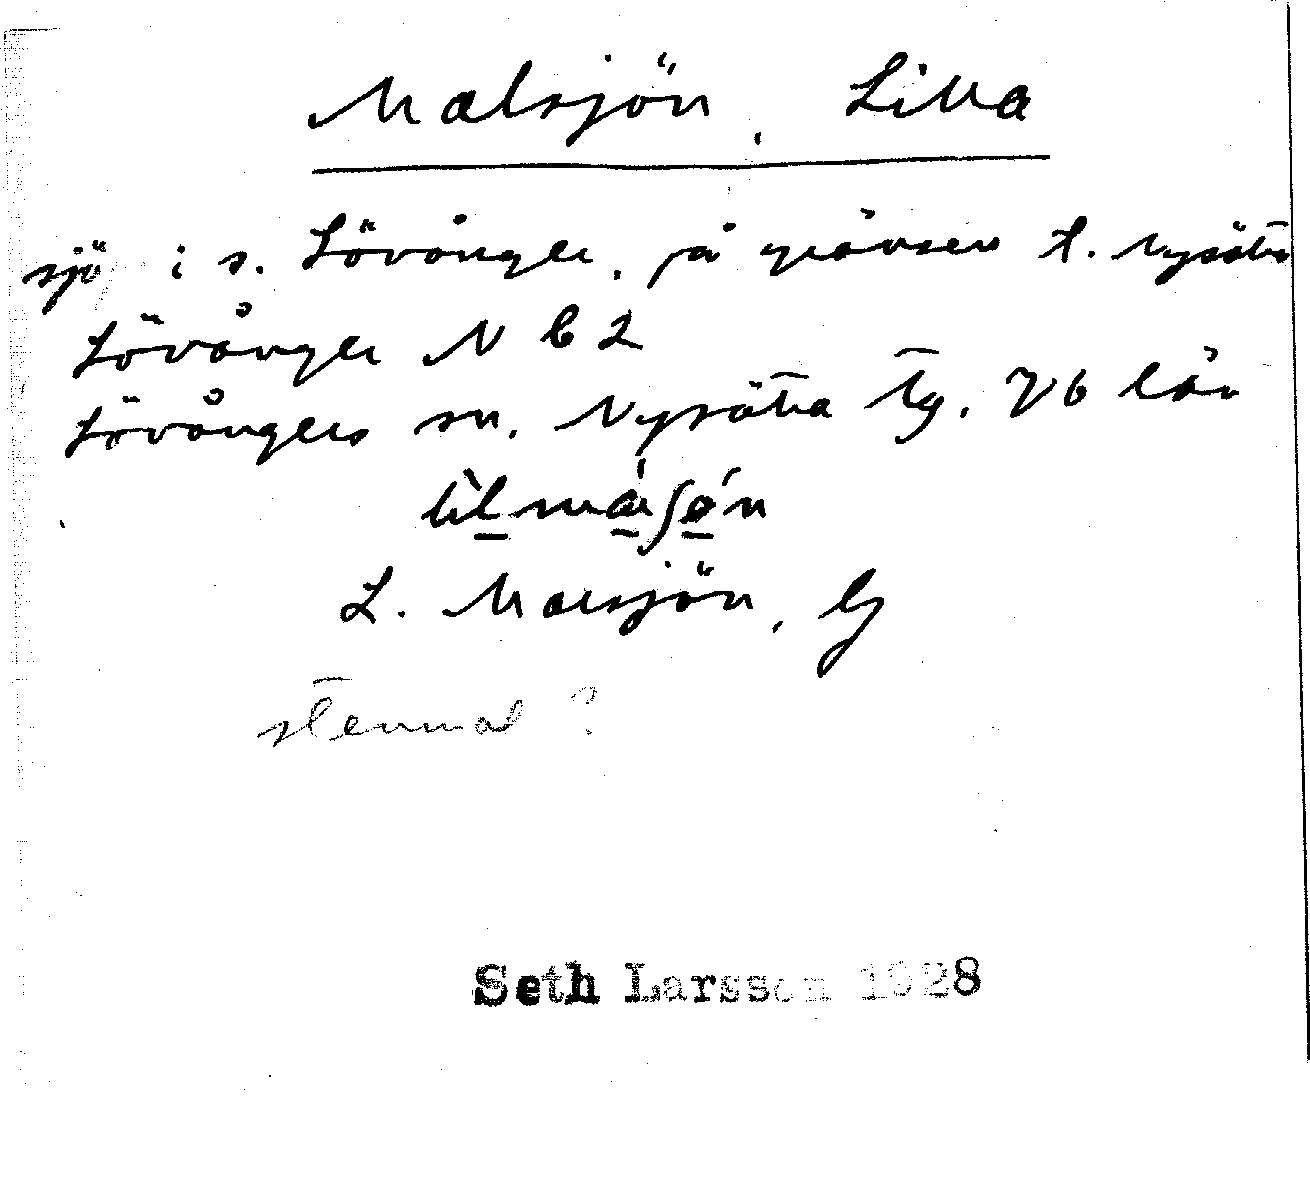 Malsjön, Lilla
sjö i s. Lövånger, på gränsen t. Nysätra
Lövånger N b 2
Lövångers sn. Nysätra tg. Vb län
L. Malsjön, Gj
stenmal ?
Seth Larsson 1928